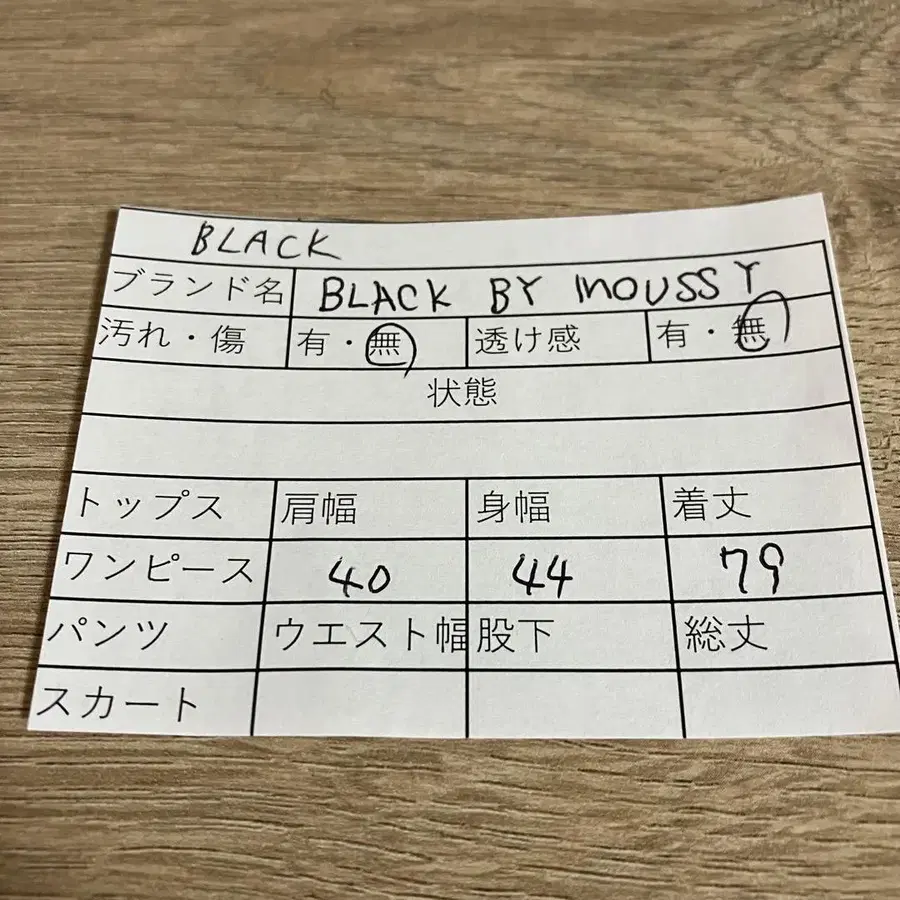 BLACK
ブランド名 BLACK BY MOUSSY
汚れ・傷 有・無 透け感 有・無
状態
トップス 肩幅 身幅 着丈
ワンピース 40 44 79
パンツ ウエスト幅 股下 総丈
スカート